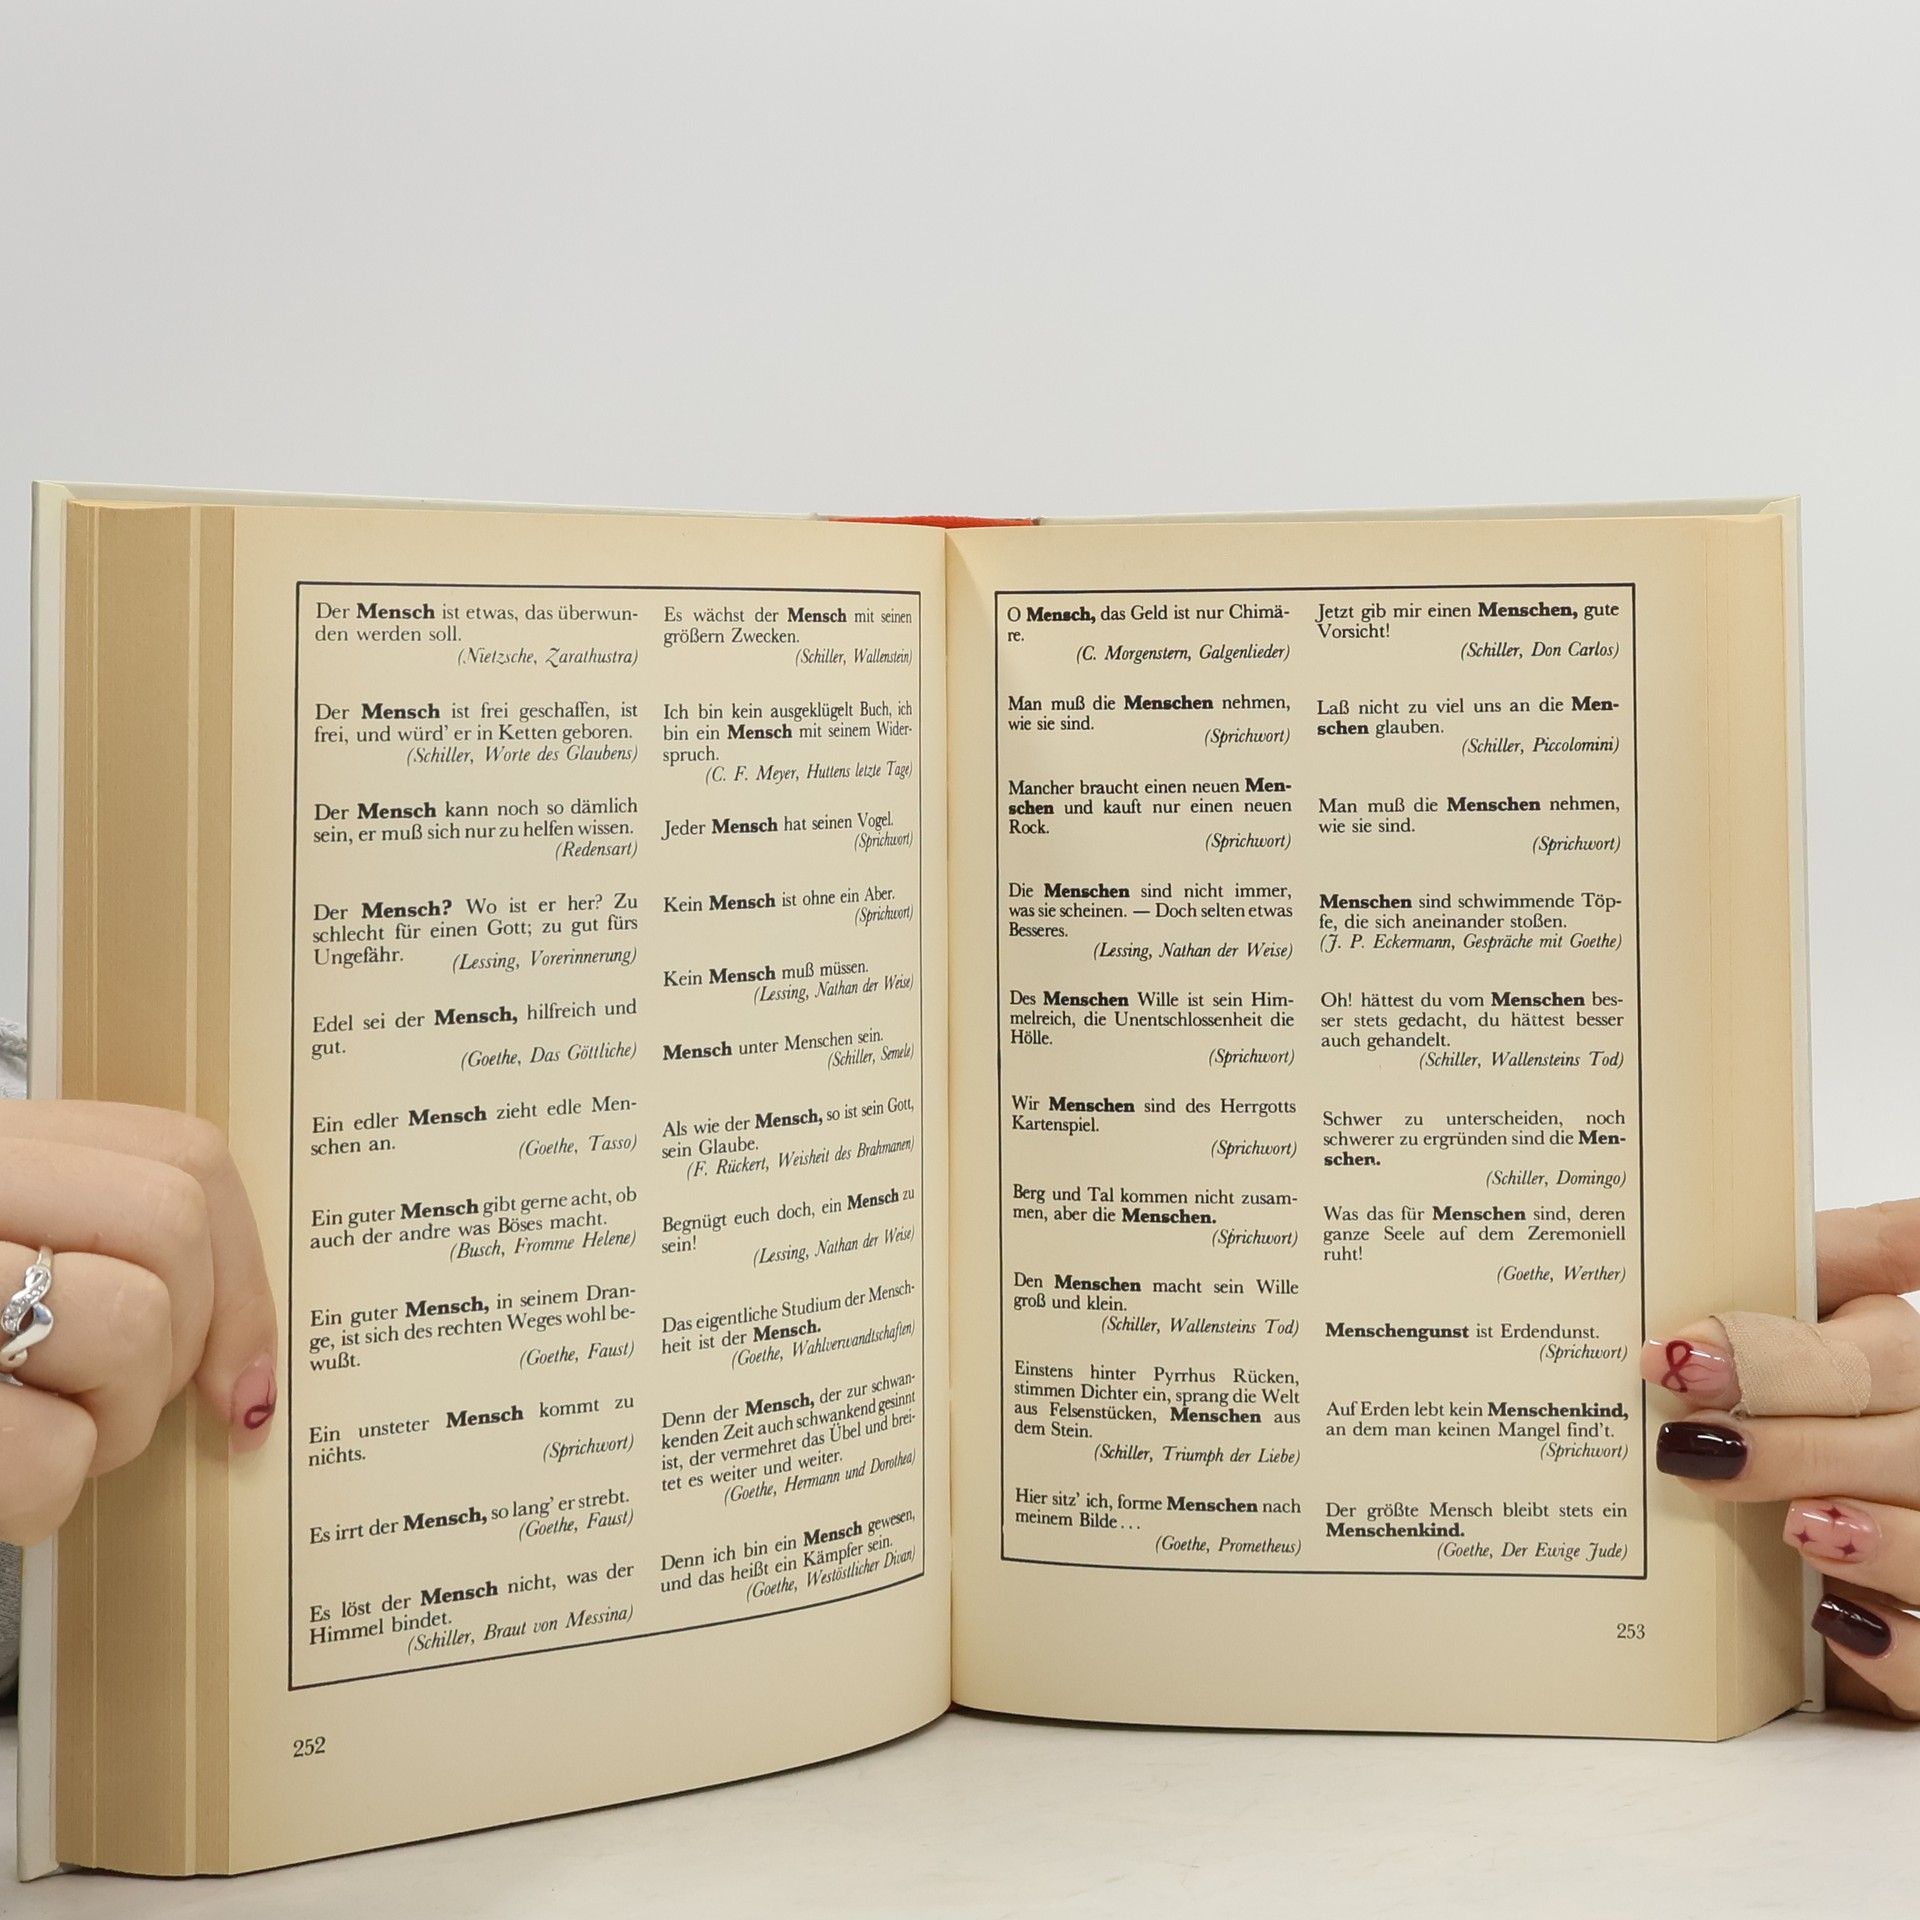 Der Mensch ist etwas, das überwun-
den werden soll.
(Nietzsche, Zarathustra)
Der Mensch ist frei geschaffen, ist
frei, und würd' er in Ketten geboren.
(Schiller, Worte des Glaubens)
Der Mensch kann noch so dämlich
sein, er muß sich nur zu helfen wissen.
(Redensart)
Der Mensch? Wo ist er her? Zu
schlecht für einen Gott; zu gut fürs
Ungefähr. (Lessing, Vorerinnerung)
Edel sei der Mensch, hilfreich und
gut.
(Goethe, Das Göttliche)
Ein edler Mensch zieht edle Men-
schen an. (Goethe, Tasso)
Ein guter Mensch gibt gerne acht, ob
auch der andre was Böses macht.
(Busch, Fromme Helene)
Ein guter Mensch, in seinem Dran-
ge, ist sich des rechten Weges wohl be-
wußt. (Goethe, Faust)
Ein unsteter Mensch kommt zu
nichts.
(Sprichwort)
Es irrt der Mensch, so lang' er strebt.
(Goethe, Faust)
Es löst der Mensch nicht, was der
Himmel bindet.
(Schiller, Braut von Messina)
Es wächst der Mensch mit seinen
größern Zwecken.
(Schiller, Wallenstein)
Ich bin kein ausgeklügelt Buch, ich
bin ein Mensch mit seinem Wider-
spruch.
(C. F. Meyer, Huttens letzte Tage)
Jeder Mensch hat seinen Vogel.
(Sprichwort)
Kein Mensch ist ohne ein Aber.
(Sprichwort)
Kein Mensch muß müssen.
(Lessing, Nathan der Weise)
Mensch unter Menschen sein.
(Schiller, Semele)
Als wie der Mensch, so ist sein Gott,
sein Glaube.
(F. Rückert, Weisheit des Brahmanen)
Begnügt euch doch, ein Mensch zu
sein!
(Lessing, Nathan der Weise)
Das eigentliche Studium der Mensch-
heit ist der Mensch.
(Goethe, Wahlverwandtschaften)
Denn der Mensch, der zur schwan-
kenden Zeit auch schwankend gesinnt
ist, der vermehret das Übel und brei-
tet es weiter und weiter.
(Goethe, Hermann und Dorothea)
Denn ich bin ein Mensch gewesen,
und das heißt ein Kämpfer sein.
(Goethe, Westöstlicher Divan)
252
O Mensch, das Geld ist nur Chimä-
re.
(C. Morgenstern, Galgenlieder)
Man muß die Menschen nehmen,
wie sie sind.
(Sprichwort)
Mancher braucht einen neuen Men-
schen und kauft nur einen neuen
Rock.
(Sprichwort)
Die Menschen sind nicht immer,
was sie scheinen. — Doch selten etwas
Besseres.
(Lessing, Nathan der Weise)
Des Menschen Wille ist sein Him-
melreich, die Unentschlossenheit die
Hölle.
(Sprichwort)
Wir Menschen sind des Herrgotts
Kartenspiel.
(Sprichwort)
Berg und Tal kommen nicht zusam-
men, aber die Menschen.
(Sprichwort)
Den Menschen macht sein Wille
groß und klein.
(Schiller, Wallensteins Tod)
Einstens hinter Pyrrhus Rücken,
stimmen Dichter ein, sprang die Welt
aus Felsenstücken, Menschen aus
dem Stein.
(Schiller, Triumph der Liebe)
Hier sitz' ich, forme Menschen nach
meinem Bilde...
(Goethe, Prometheus)
Jetzt gib mir einen Menschen, gute
Vorsicht!
(Schiller, Don Carlos)
Laß nicht zu viel uns an die Men-
schen glauben.
(Schiller, Piccolomini)
Man muß die Menschen nehmen,
wie sie sind.
(Sprichwort)
Menschen sind schwimmende Töp-
fe, die sich aneinander stoßen.
(J. P. Eckermann, Gespräche mit Goethe)
Oh! hättest du vom Menschen bes-
ser stets gedacht, du hättest besser
auch gehandelt.
(Schiller, Wallensteins Tod)
Schwer zu unterscheiden, noch
schwerer zu ergründen sind die Men-
schen.
(Schiller, Domingo)
Was das für Menschen sind, deren
ganze Seele auf dem Zeremoniell
ruht!
(Goethe, Werther)
Menschengunst ist Erdendunst.
(Sprichwort)
Auf Erden lebt kein Menschenkind,
an dem man keinen Mangel find't.
(Sprichwort)
Der größte Mensch bleibt stets ein
Menschenkind.
(Goethe, Der Ewige Jude)
253